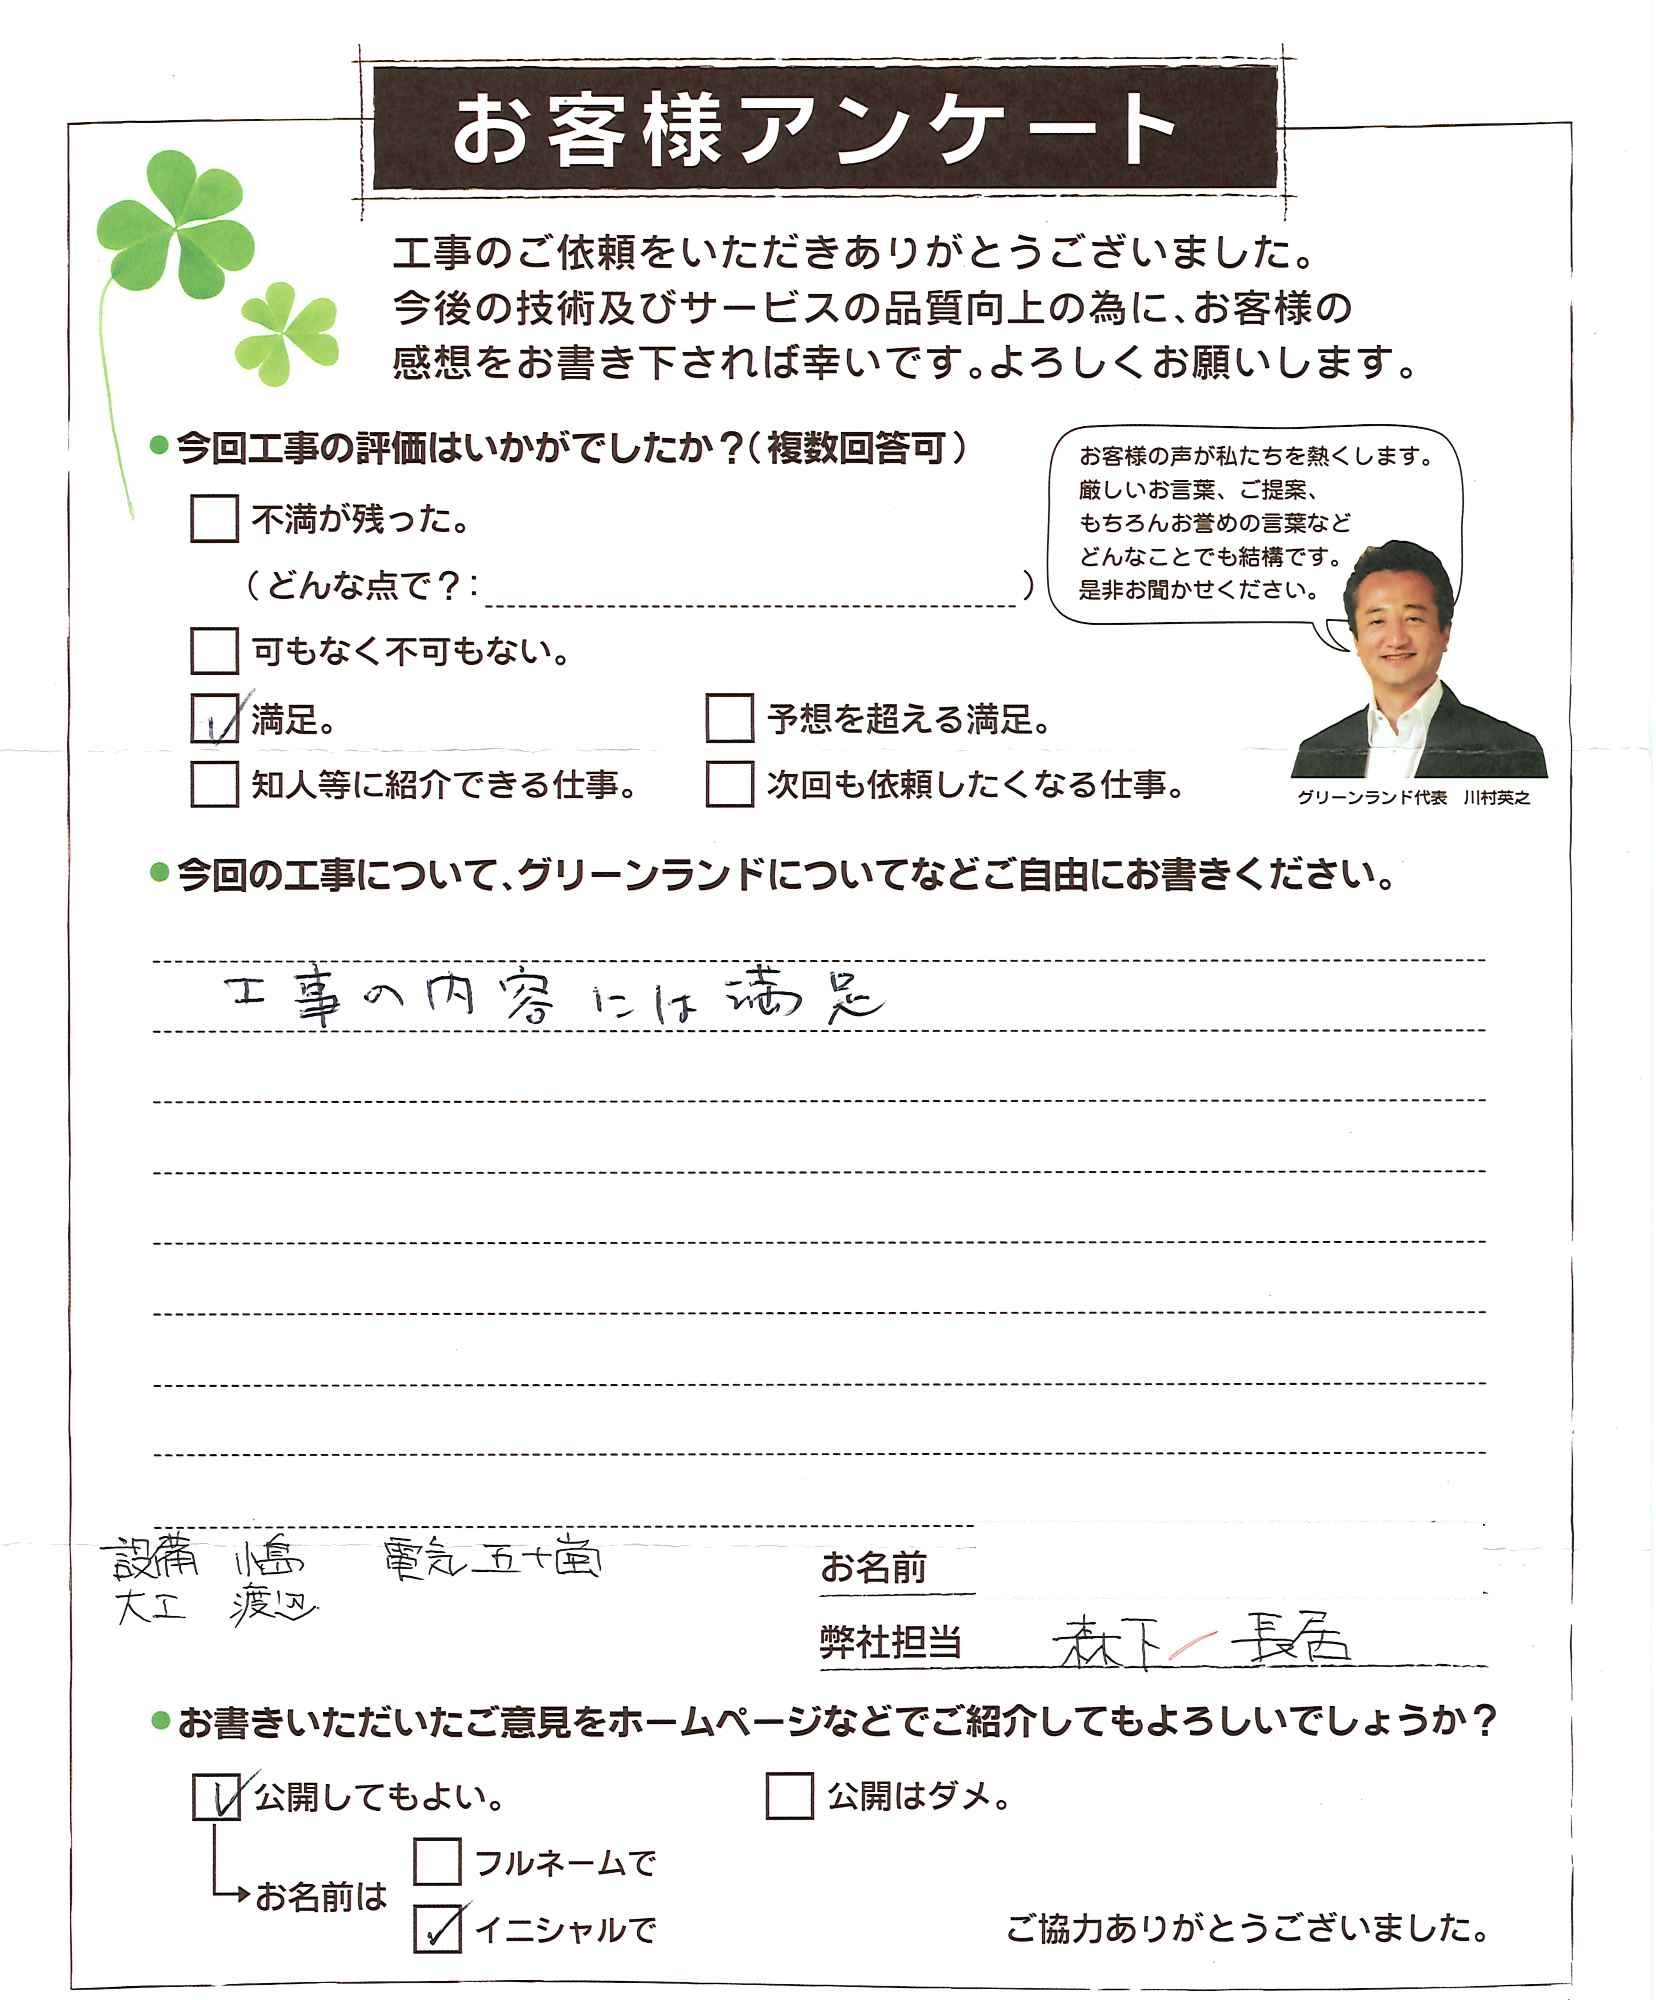 お客様アンケート
工事のご依頼をいただきありがとうございました。
今後の技術及びサービスの品質向上の為に、お客様の
感想をお書き下されば幸いです。よろしくお願いします。
●今回工事の評価はいかがでしたか？（複数回答可）
お客様の声が私たちを熱くします。
厳しいお言葉、ご提案、
もちろんお誉めの言葉など
どんなことでも結構です。
是非お聞かせください。
不満が残った。
（どんな点で？：　）
可もなく不可もない。
満足。
予想を超える満足。
知人等に紹介できる仕事。
次回も依頼したくなる仕事。
グリーンランド代表　川村英之
●今回の工事について、グリーンランドについてなどご自由にお書きください。
工事の内容には満足
設備　小島　電気　五十嵐
大工　渡辺
お名前
弊社担当　森下／長居
●お書きいただいたご意見をホームページなどでご紹介してもよろしいでしょうか？
公開してもよい。
公開はダメ。
お名前は
フルネームで
イニシャルで
ご協力ありがとうございました。